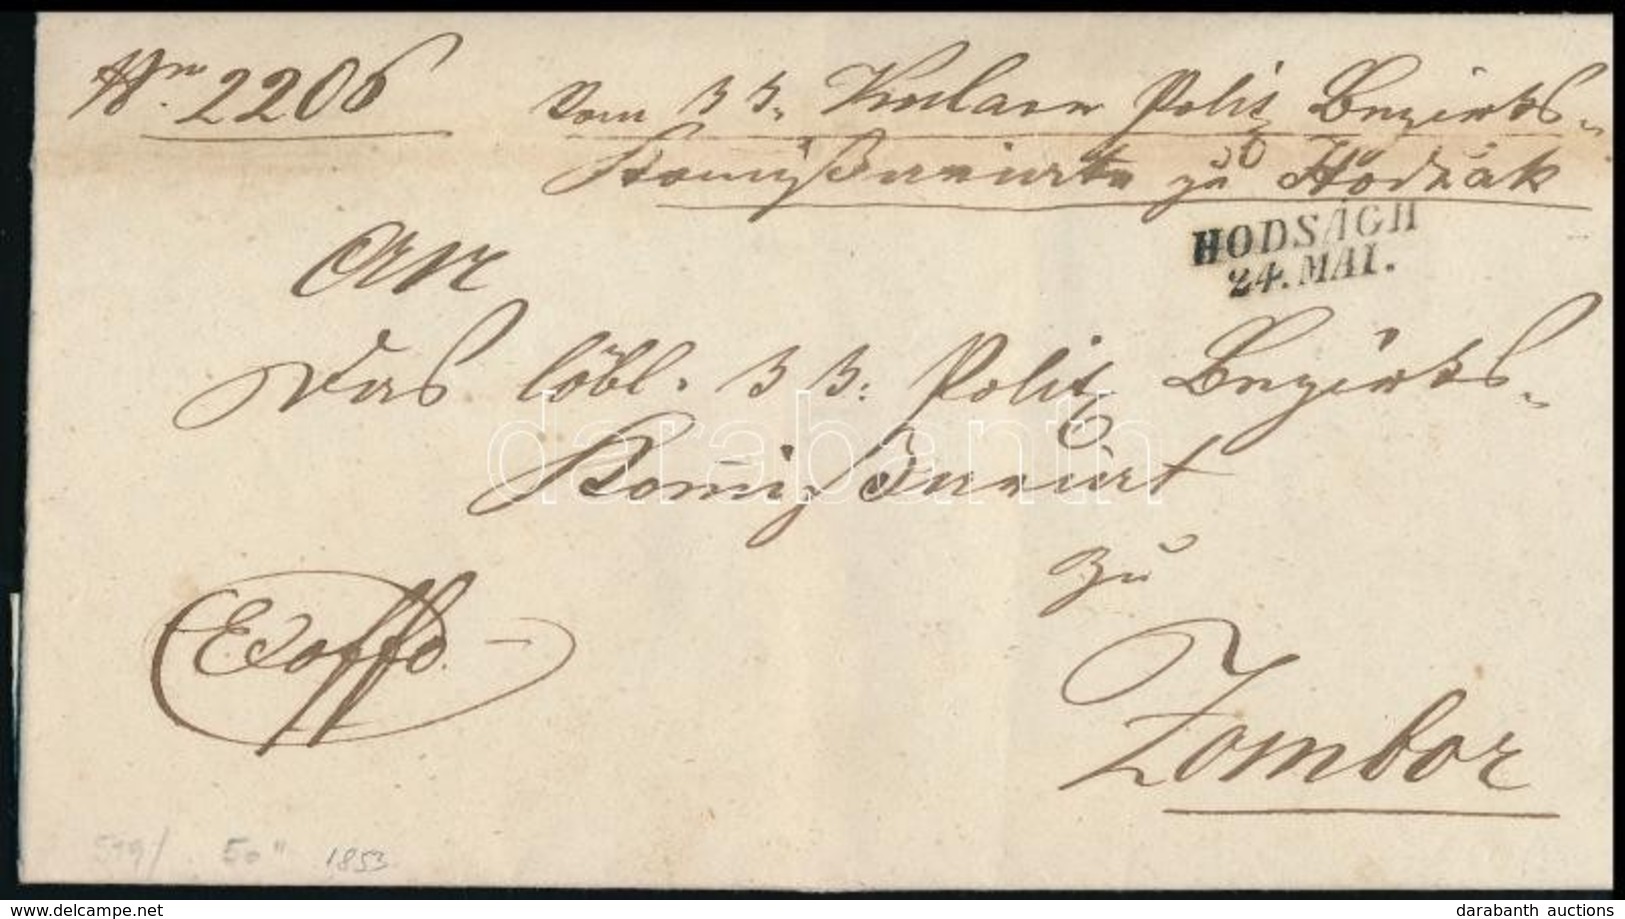 Nrn. 2206
Vom k k. Polit. Bezirks-
Kommissariate zu Hodsak
HODSÁGH
24. MAI.
An
Das löbl. k k: Polit. Bezirks-
Kommissariat
darabanth
zu
Exoffo.
Zombor
519/ 50" 1853
delcampe.net
darabanth auctions